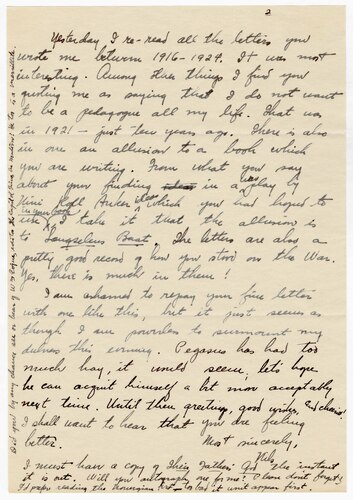 2
Yesterday I re-read all the letters you
wrote me between 1916-1929. It was most
interesting. Among other things I find you
quoting me as saying that I do not want
to be a pedagogue all my life. That was
in 1921 - just ten years ago. There is also
in one an allusion to a book which
you are writing. From what you say
about your finding in a play by
ideas which you had hoped to
in your book
use I take it that the allusion is
to The letters are also a
pretty good record of how you stood on the War.
Yes, there is much in them!
I am ashamed to repay your fine letter
with one like this, but it just seems as
though I am powerless to surmount my
dulness this evening. Pegasus has had too
much hay, it would seem, let's hope
he can acquit himself a bit more acceptably
next time. Until then greetings, good wishes, and
I shall want to hear that you are feeling
better. Most sincerely,
Nels.
I must have a copy of Their Fathers' God the instant
it is out. Will you autograph one for me? Please don't forget!
I'd keep reading the Norwegian first - too bad it won't appear first.
Did you by any chance see or hear of